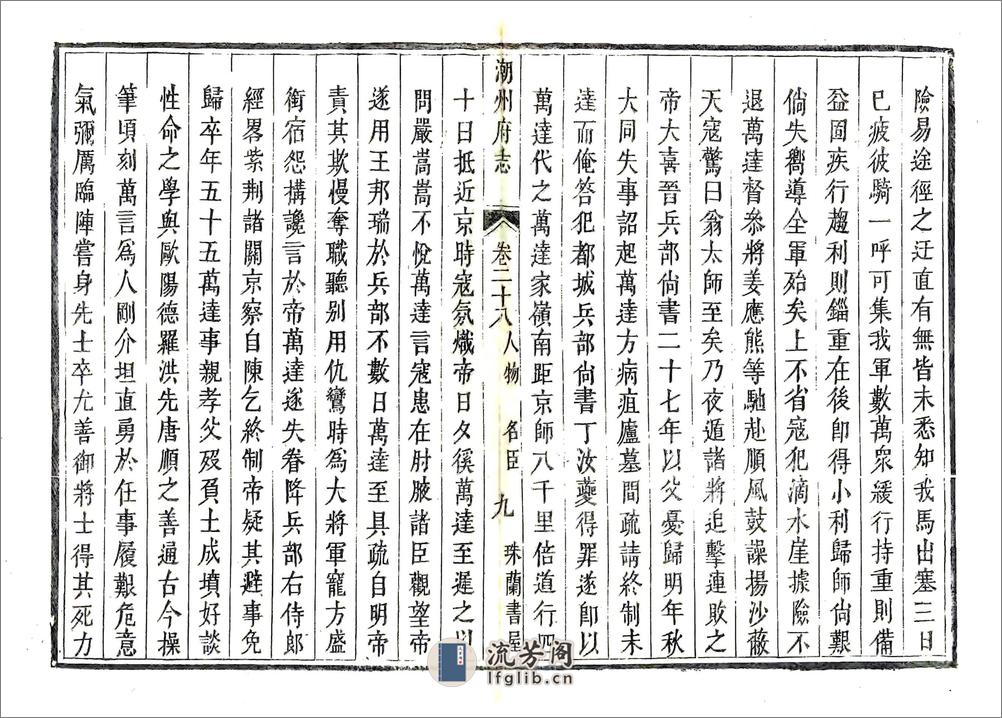 險易途徑之迂直有無皆未悉知我馬出塞三日
已疲彼騎一呼可集我軍數萬衆緩行持重則備
益固疾行趨利則錙重在後卽得小利歸師尙艱
倘失嚮導全軍殆矣上不省寇犯滴水崖據險不
退萬達督叅將姜應熊等馳赴順風鼓譟揚沙蔽
天寇驚曰翁太師至矣乃夜遁諸將追擊連敗之
帝大喜晉兵部尙書二十七年以父憂歸明年秋
大同失事詔起萬達方病疽廬墓間疏請終制未
達而俺答犯都城兵部尙書丁汝夔得罪遂卽以
萬達代之萬達家嶺南距京師八千里倍道行四
潮州府志 卷二十八 人物 名臣 九 珠蘭書屋
十日抵近京時寇氛熾帝日夕徯萬達至遲之以
問嚴嵩嵩不悅萬達言寇患在肘腋諸臣觀望帝
遂用王邦瑞於兵部不數日萬達至具疏自明帝
責其欺慢奪職聽别用仇鸞時爲大將軍寵方盛
銜宿怨搆讒言於帝萬達遂失眷降兵部右侍郎
經畧紫荆諸關京察自陳乞終制帝疑其避事免
歸卒年五十五萬達事親孝父歿負土成墳好談
性命之學與歐陽德羅洪先唐順之善通古今操
筆頃刻萬言爲人剛介坦直勇於任事履艱危意
氣彌厲臨陣嘗身先士卒尤善御將士得其死力
流芳阁
lfglib.cn